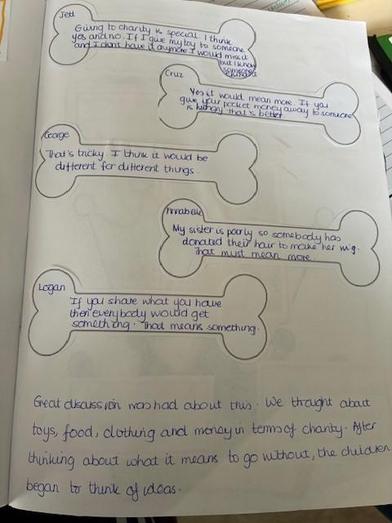 Jett
Giving to charity is special. I think
yes and no. If I give my toy to someone
and I don't have it anymore I would miss it
but I know
someone
Cruz
Yes it would mean more. If you
give your pocket money away to someone
is hungry that's better
George
That's tricky. I think it would be
different for different things.
Annabelle
My sister is poorly so somebody has
donated their hair to make her wig.
That must mean more.
Logan
If you share what you have
then everybody would get
something. That means something.
Great discussion was had about this. We thought about
toys, food, clothing and money in terms of charity. After
thinking about what it means to go without, the children
began to think of ideas.